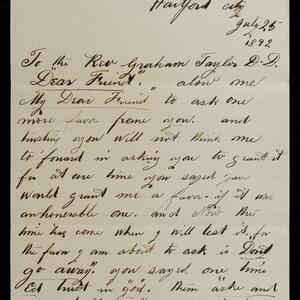 Hartford City
July 25
1892
To "the Rev Graham Taylor D-D.
"Dear Friend". alow me
My Dear Friend to ask one
more favor frome you. and
trusting you will not think me
to foward in asking you to grant it
for at one time you sayed you
would grant me a favor if it was
an honorable one. and Now the
time has come when I will test it. for
the favor I am about to ask is Dont
go away". you sayed one time
trust in "god. them "aske and